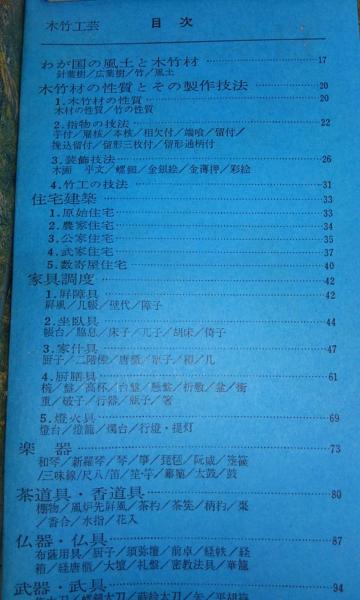 木竹工芸 目次
わが国の風土と木竹材 17
針葉樹／広葉樹／竹／風土
木竹材の性質とその製作技法 20
1.木竹材の性質 20
木材の性質／竹の性質
2.指物の技法 22
矢付／雇核／本核／相欠付／端喰／留付／
挽込留付／留形三枚付／留形通柄付
3.装飾技法 26
木画 平文／螺鈿／金銀絵／金薄押／彩絵
4.竹工の技法 31
住宅建築 33
1.原始住宅 33
2.農家住宅 34
3.公家住宅 35
4.武家住宅 37
5.数寄屋住宅 40
家具調度 42
1.屏障具 42
屏風／几帳／壁代／障子
2.坐臥具 44
帳台／脇息／床子／兀子／胡床／倚子
3.家什具 47
厨子／二階棚／唐櫃／箱／几
4.厨膳具 61
椀／盤／高杯／台盤／懸盤／折敷／盆／衝
重／破子／行器／瓶子／箸
5.燈火具 69
燈台／燈籠／燭台／行燈・提灯
楽器 73
和琴／新羅琴／琴／箏／琵琶／阮咸／箜篌
／三味線／尺八／笛／笙竽／篳篥／太鼓／鼓
茶道具・香道具 80
棚物／風炉先屏風／茶杓／茶筅／柄杓／棗
／香合／水指／花入
仏器・仏具 87
布薩用具／厨子／須弥壇／前卓／経帙／経
箱／経唐櫃／大壇／礼盤／密教法具／華籠
武器・武具 94